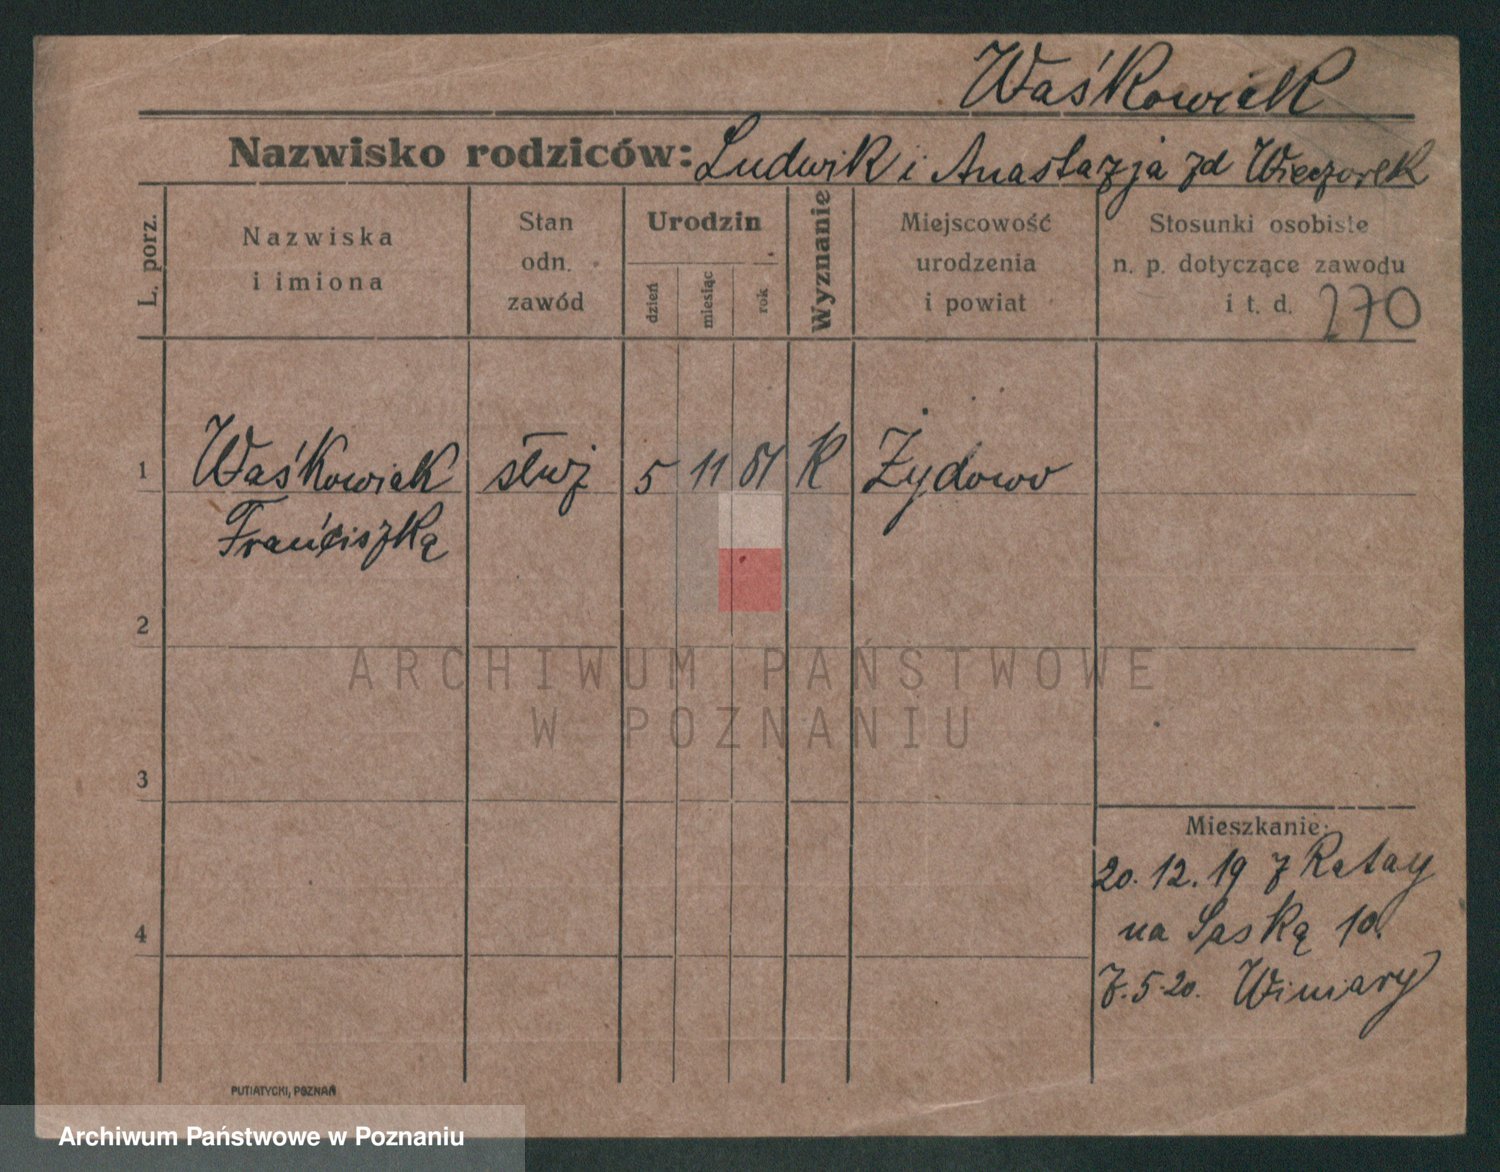 Waśkowiak
Nazwisko rodziców: Ludwik i Anastazja zd Wieczorek
L. porz.
Nazwiska
i imiona
Stan
odn.
zawód
Urodzin
dzień
miesiąc
rok
Wyznanie
Miejscowość
urodzenia
i powiat
Stosunki osobiste
n. p. dotyczące zawodu
i t. d. 270
1 Waśkowiak służ 5 11 R Żydowo
Franciszka
2
ARCHIWUM PAŃSTWOWE
W POZNANIU
3
Mieszkanie:
20.12.19 z Rataj
na Saską 10.
7.5.20. Winiary
4
PUTIATYCKI, POZNAŃ
Archiwum Państwowe w Poznaniu